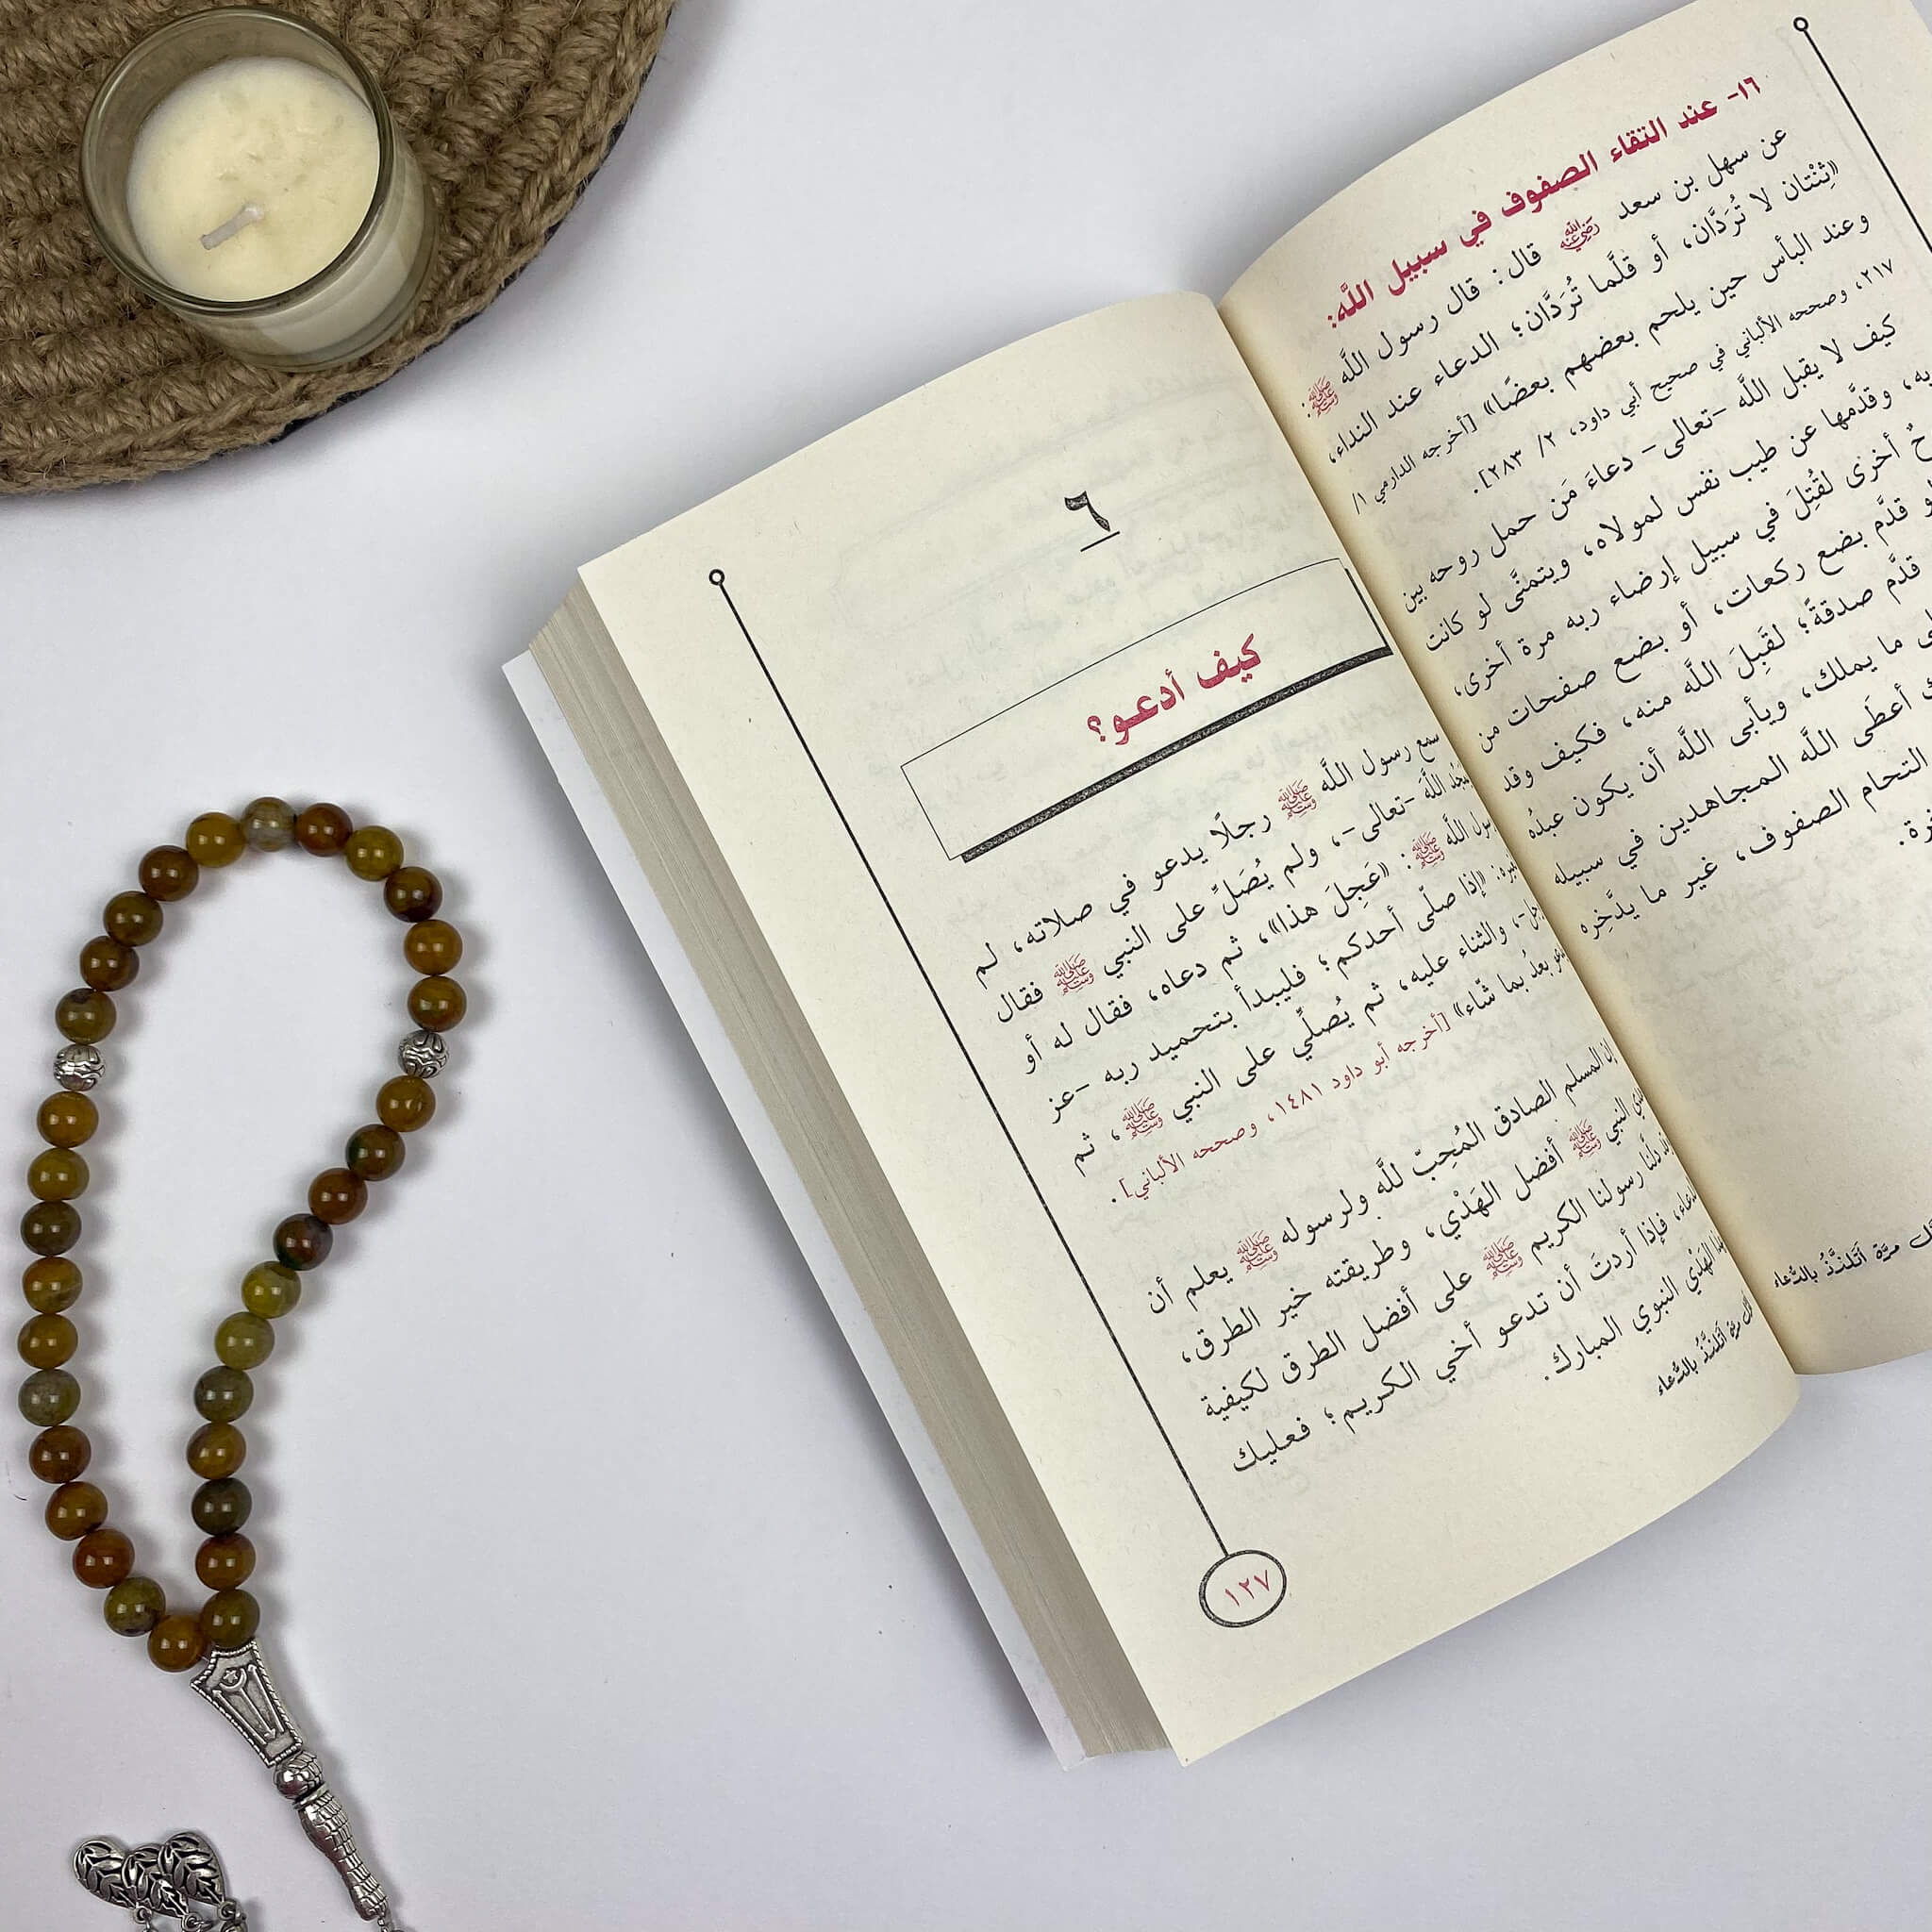 ١٦- عند التقاء الصفوف في سبيل اللَّه:
عن سهل بن سعد رضي الله عنه قال: قال رسول اللَّه ﷺ:
«ثِنْتان لا تُرَدَّان، أو قلَّما تُرَدَّان؛ الدعاء عند النداء،
وعند البأس حين يلحم بعضهم بعضًا» [أخرجه الدارمي ١/
٢١٧، وصححه الألباني في صحيح أبي داود، ٢/ ٢٨٣].
كيف لا يقبل اللَّه -تعالى- دعاءَ مَن حمل روحه بين
وقدَّمها عن طيب نفس لمولاه، ويتمنَّى لو كانت
أخرى لقُتِلَ في سبيل إرضاء ربه مرة أخرى،
قدَّم بضع ركعات، أو بضع صفحات من
قدَّم صدقةً؛ لقَبِلَ اللَّه منه، فكيف وقد
ما يملك، ويأبى اللَّه أن يكون عبدُه
أعطَى اللَّه المجاهدين في سبيله
التحام الصفوف، غير ما يدَّخِره
مرَّة أَتَلذَّذُ بالدُّعاء
٦
كيف أدعو؟
سمع رسول اللَّه ﷺ رجلًا يدعو في صلاته، لم
يمجِّد اللَّهَ -تعالى-، ولم يُصَلِّ على النبي ﷺ فقال
رسول اللَّه ﷺ: «عَجِلَ هذا»، ثم دعاه، فقال له أو
لغيره: «إذا صلَّى أحدكم؛ فليبدأ بتحميد ربه -عز
وجل-، والثناء عليه، ثم يُصلِّي على النبي ﷺ، ثم
يدعو بعدُ بما شاء» [أخرجه أبو داود ١٤٨١، وصححه الألباني].
إن المسلم الصادق المُحِبّ للَّه ولرسوله ﷺ يعلم أن
هدي النبي ﷺ أفضل الهَدْي، وطريقته خير الطرق،
دلَّنا رسولنا الكريم ﷺ على أفضل الطرق لكيفية
الدعاء، فإذا أردتَ أن تدعو أخي الكريم؛ فعليك
بهذا الهَدْي النبوي المبارك.
مرَّة أَتَلذَّذُ بالدُّعاء
١٢٧